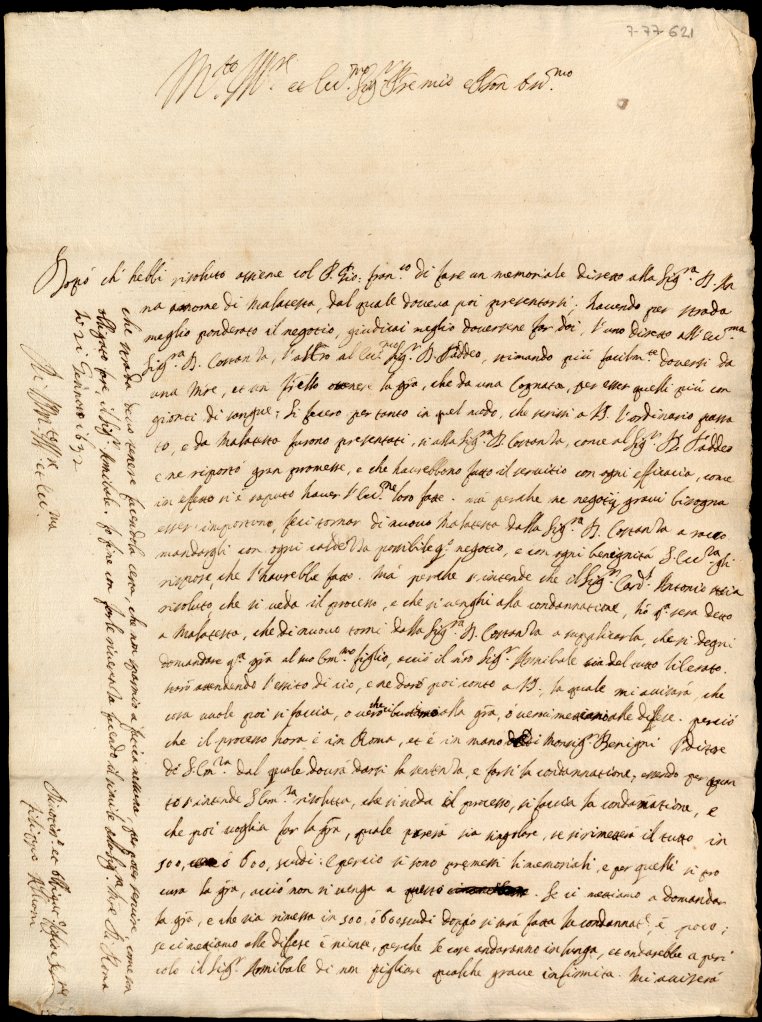 7-77-621
M.to Ill.re et Ecc.mo Sig.r P.ron
Dopò ch'hebbi risoluto assieme col P. Gio: Fran.co di fare un memoriale diretto alla Sig.ra D. An
na a nome di Malatesta, dal quale doveva poi presentarsi. havendo per strada
meglio ponderato il negotio, giudicai meglio doversene far doi, l'uno diretto all'Ecc.ma
Sig.ra D. Costanza, l'altro al Ecc.mo Sig.r D. Taddeo, stimando più facilm.te doversi da
una M̃re, et un fr̃ello ottenere la gr̃a, che da una Cognata, per esser quelli più con
gionti di sangue; Si fecero pertanto in quel modo, che scrissi a V.S. l'ordinario passa
to, e da Malatesta furono presentati, sì alla Sig.ra D. Costanza, come al Sig.r D. Taddeo
e ne riportò gran promesse, e che havrebbono fatto il servitio con ogni efficacia, come
in effetto si è saputo haver l'Ecc.ze loro fatto. mà perche ne negotij gravi bisogna
esser importuno, feci tornar di nuovo Malatesta dalla Sig.ra D. Costanza a racco
mandargli con ogni caldezza possibile q.o negotio, e con ogni benignità S. Ecc.za gli
rispose, che l'havrebbe fatto. Mà perche s'intende che il Sig.r Card.l Antonio stia
risoluto, che si veda il processo, e che si venghi alla condannatione, hò q.a sera detto
a Malatesta, che di nuovo torni dalla Sig.ra D. Costanza a supplicarla, che si degni
domandare q.a gr̃a al suo Em.mo figlio, acciò il nr̃o Sig.r Annibale sia del tutto liberato.
starò attendendo l'essito di ciò, e ne darò poi conto a V.S. la quale mi avisarà, che
cosa vuole poi si faccia, o vero che ci buttiamo alla gr̃a, ò versi mettiamo alle difese. perciò
che il processo hora è in Roma, et è in mano di Monsig.r Benigni Auditore
di S. Em.za dal quale dovrà darsi la sentenza, e farsi la condannatione; essendo per quan
to s'intende S. Em.za risoluta, che si veda il processo, si faccia la condannatione, e
che poi voglia far la gr̃a, quale parerà sia singolare, se si rimetterà il tutto in
500, ò 600, scudi: e perciò si sono premessi li memoriali, e per quelli si pro
cura la gr̃a, acciò non si venga a questo. Se ci mettiamo a domandar
la gr̃a, e che sia rimessa in 500, ò 600 scudi doppo si sarà fatta la condannat.e, è poco;
se ci mettiamo alle difese è niente, perche le cose andaranno in lunga, et andarebbe a peri
colo il Sig.r Annibale di non pigliare qualche grave infirmità. Mi avisarà
che strada devo tenere facendola certa, che non sparmio a fatica nessuna, per poter servire, come son
obligato fare il Sig.r Annibale. E fine con farle riverenza facendo il simile alla Sig.ra Madre. Di Roma
li 21 Gennaro 1632
Di V.S. M.to Ill.re et Ecc.ma
Devotiss.o et obligatiss.o
Filippo